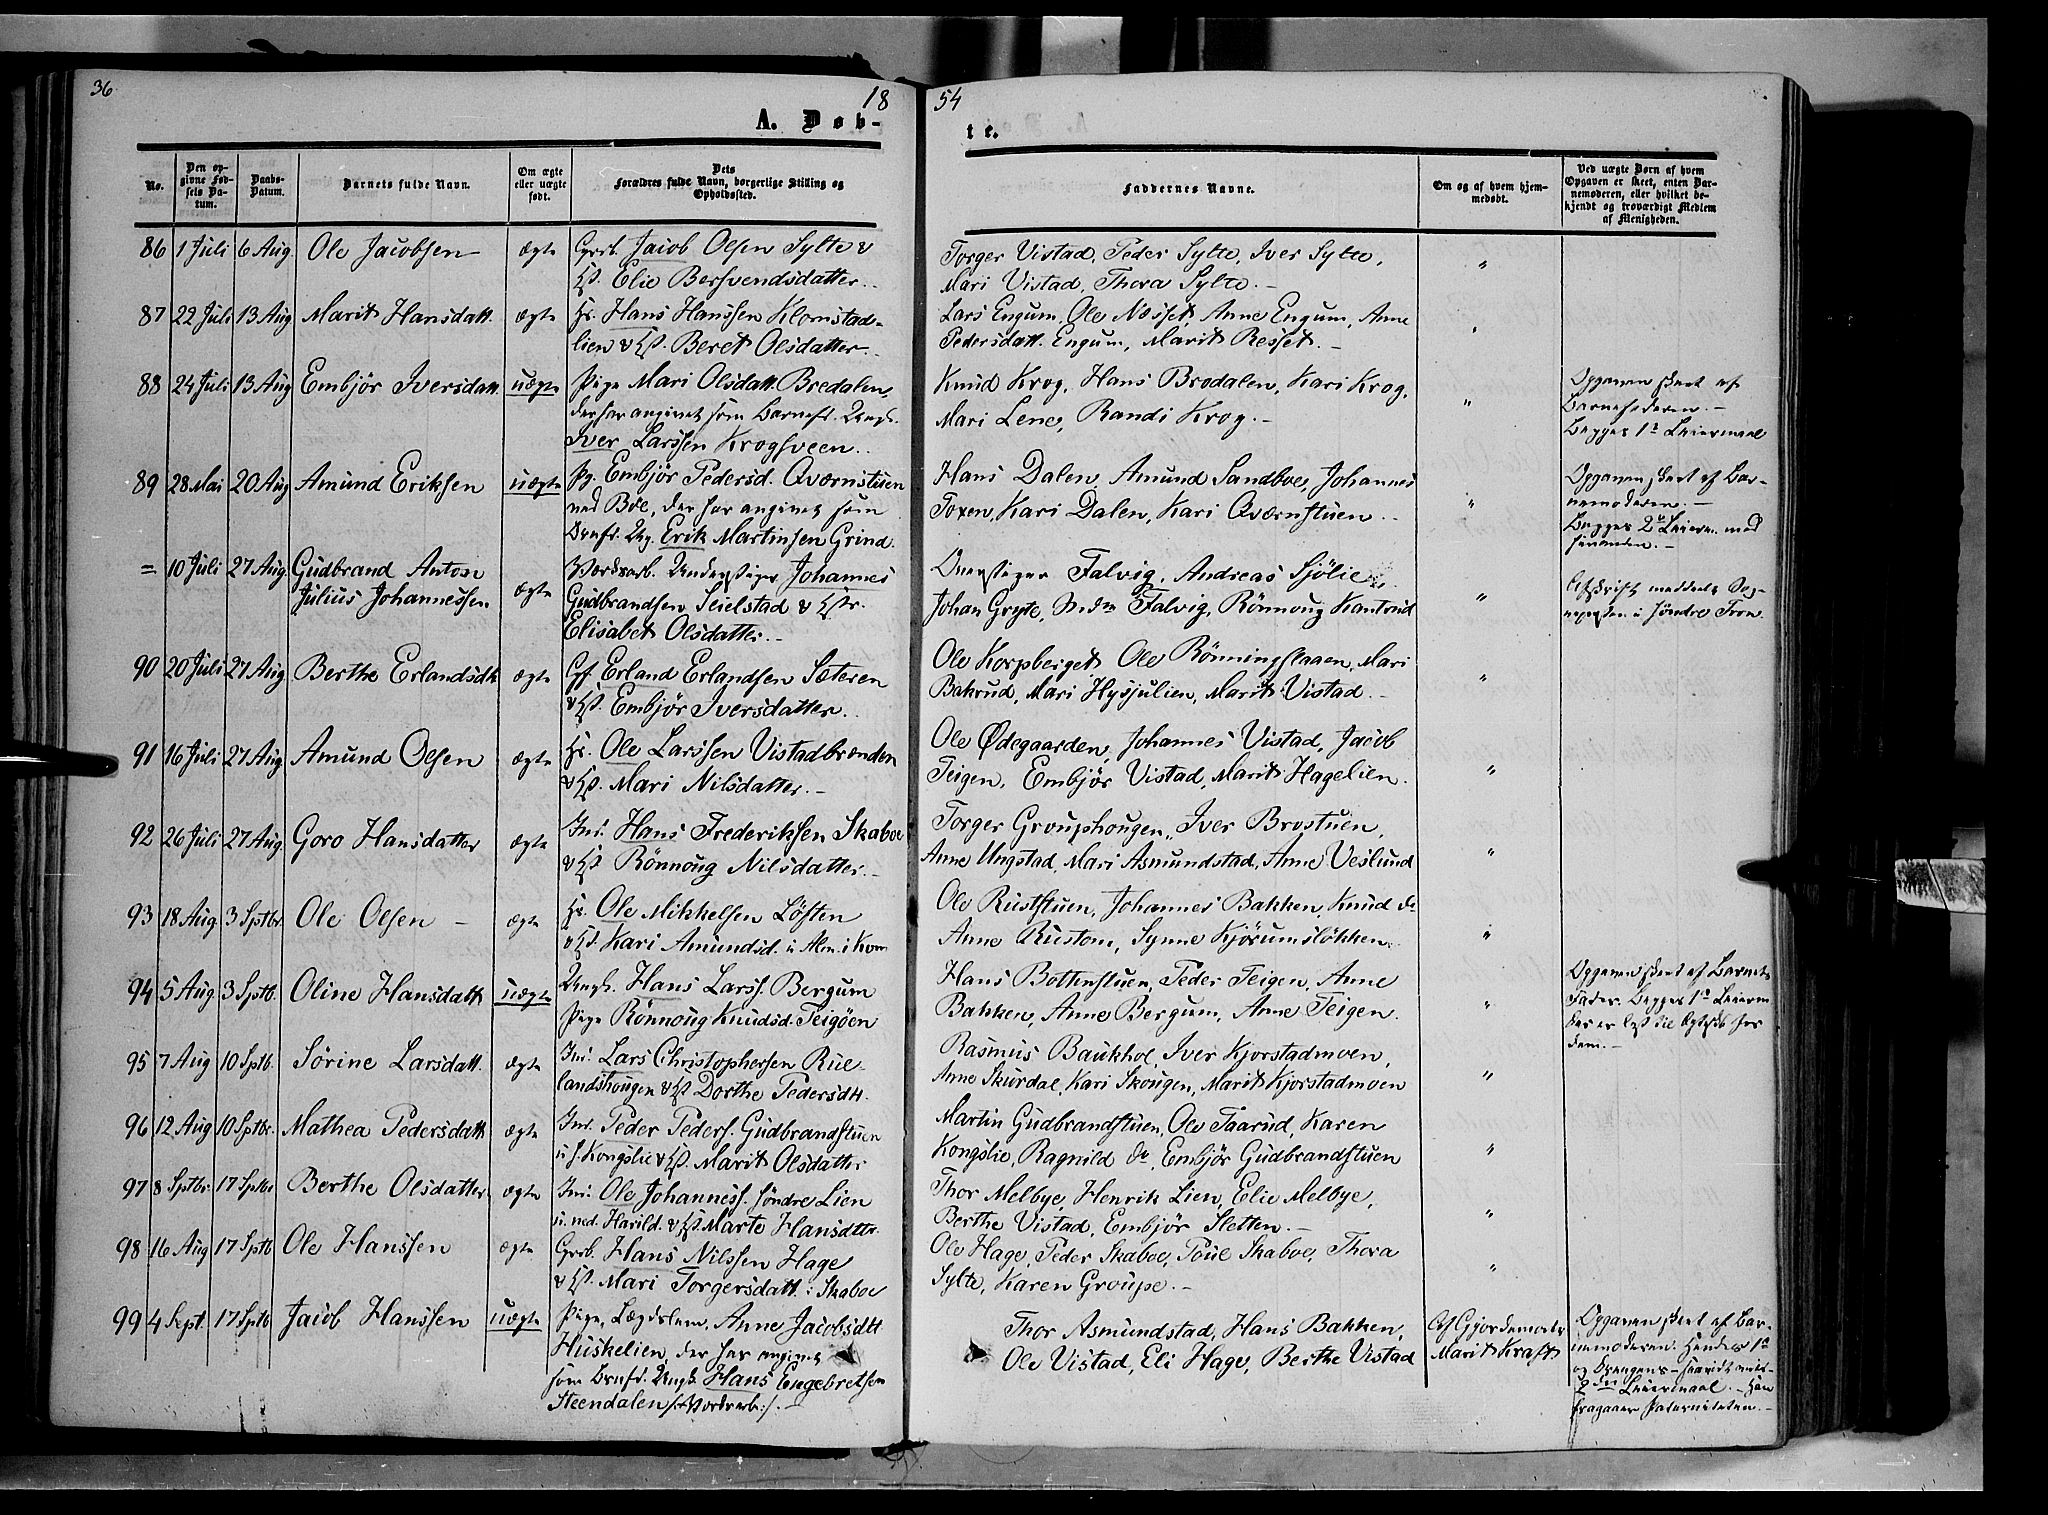 36
18
54
A. Døb-
te.
No.
Den op-
givne Fød-
sels Da-
tum.
Daabs-
Datum.
Barnets fulde Navn.
Om ægte
eller uægte
født.
Dets
Forældres fulde Navn, borgerlige Stilling og
Opholdssted.
Faddernes Navne.
Om og af hvem hjem-
medøbt.
Ved uægte Børn af hvem
Opgaven er skeet, enten Bar-
nemoderen, eller hvilket be-
kjendt og troværdigt Medlem
af Menigheden.
86 1 Juli 6 Aug. Ole Jacobsen ægte Grb. Jacob Olsen Sylte &
Elie Bersvendsdatter.
Torger Vistad, Peder Sylte, Iver Sylte, "
Mari Vistad, Thora Sylte.
87 22 Juli 13 Aug Marit Hansdatt. ægte Hs. Hans Hanssen Klomstad-
lien & Beret Olsdatter
Lars Engum, Ole Næsset, Anne Engum, Anne "
Pedersdatt. Engum, Marit Resset.
88 24 Juli 13 Aug Embjör Iversdatt. uægte Pige Mari Olsdatt. Bredalen,
der har angivet som Barnef. Ungk.
Iver Larssen Krogsveen.
Knud Krog, Hans Brodalen, Kari Krog, "
Mari Lene, Randi Krog.
Opgaven skeet af
Barnefaderen.
Begges 1ste Leiermaal
89 28 Mai 20 Aug Amund Eriksen uægte Pg. Embjör Pedersd. Qværnstuen
ned Böe, der har angivet som
Brnfr. Ug. Erik Martinsen Grind.
Hans Dalen, Amund Sandboe, Johannes "
Toxen, Kari Dalen, Kari Qværnstuen.
Opgaven skeet af Bar-
nemoderen.
Begges 2 Leierm. med
hinanden.
= 10 Juli 27 Aug. Gudbrand Anton
Julius Johannessen ægte Johannes
Gudbrandsen Seielstad &
Elisabet Olsdatter.
Falvig, Andreas Sjölie,
Johan Gryte, Mdm Falvig, Rönnoug Kantrud "
Afskrift meddelt Sog-
nepresten i Søndre Fron
90 20 Juli 27 Aug. Berthe Erlandsdt. ægte Gf. Erland Erlandsen Sæteren
& Embjör Iversdatter.
Ole Korpberget, Ole Rönningslaaen, Mari "
Bakrud, Mari Hysjulien, Marit Vistad.
91 16 Juli 27 Aug. Amund Olsen ægte Hs. Ole Larssen Vistadbrenden
& Mari Nilsdatter.
Ole Ødegaarden, Johannes Vistad, Jacob "
Teigen, Embjör Vistad, Marit Hagelien.
92 26 Juli 27 Aug. Goro Hansdatter ægte Ind. Hans Frederiksen Skaboe
& Rönnoug Nilsdatter.
Torger Grouphougen, Iver Brostuen, "
Anne Ungstad, Mari Asmundstad, Anne Veslund
93 18 Aug. 3 Sptbr. Ole Olsen ægte Hs. Ole Mikkelsen Löften
& Kari Amundsd. u Alm. i Kvm
Ole Ruststuen, Johannes Bakken, Knud do "
Anne Rustom, Synne Kjörumslökken.
94 5 Aug. 3 Sptb. Oline Hansdatt. uægte Ungk. Hans Larss. Bergum
Pige Rönnoug Knudsd. Teigöen
Hans Bottenstuen, Peder Teigen, Anne "
Bakken, Anne Bergum, Anne Teigen.
Opgaven skeet af Barnets
Fader. Begges 1ste Leierm
der er lyst til Ægtesk. for
dem.
95 7 Aug 10 Sptb. Sörine Larsdatt. ægte Ind. Lars Christophersen Rue-
landshougen & Dorthe Pedersdtt.
Rasmus Baukhol, Iver Kjorstadmoen, "
Anne Skurdal, Kari Skougen, Marit Kjorstadmoen
96 12 Aug 10 Sptbr. Mathea Pedersdatt. ægte Ind. Peder Peders. Gudbrandstuen
u. s. Kongslie & Marit Olsdatter
Martin Gudbrandstuen, Ole Taarud, Karen "
Kongslie, Ragnild do, Embjör Gudbrandstuen
97 8 Sptbr. 17 Sptbr Berthe Olsdatter ægte Ind. Ole Johanness. söndre Lien
u. ned. Harild. & Marte Hansdtr.
Thor Melbye, Henrik Lien, Elie Melbye, "
Berthe Vistad, Embjör Sletten.
98 16 Aug 17 Sptb Ole Hanssen ægte Grb. Hans Nilssen Hage
& Mari Torgersdatt. i Skaboe
Ole Hage, Peder Skaboe, Poul Skaboe, Thora "
Sylte, Karen Groupe.
99 4 Sept. 17 Sptb Jacob Hanssen uægte Pige, Lægdslem, Anne Jacobsdtt
Huskelien, der har angivet
som Brnfd. Ungk. Hans Engebretsen
Steendalen
Thor Asmundstad, Hans Bakken,
Ole Vistad, Eli Hage, Berthe Vistad
Af Gjordemoder
Marit Kraft
Opgaven skeet af Bar-
nemoderen. Hendes 1ste
og Drengens
2den Leiermaal. Han
fragaaer Paterniteten.